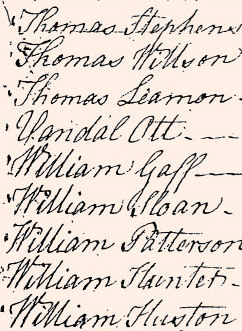 Thomas Stephens
Thomas Willson
Thomas Leamon
Vandal Ott
William Gaff
William Sloan
William Patterson
William Hunter
William Huston